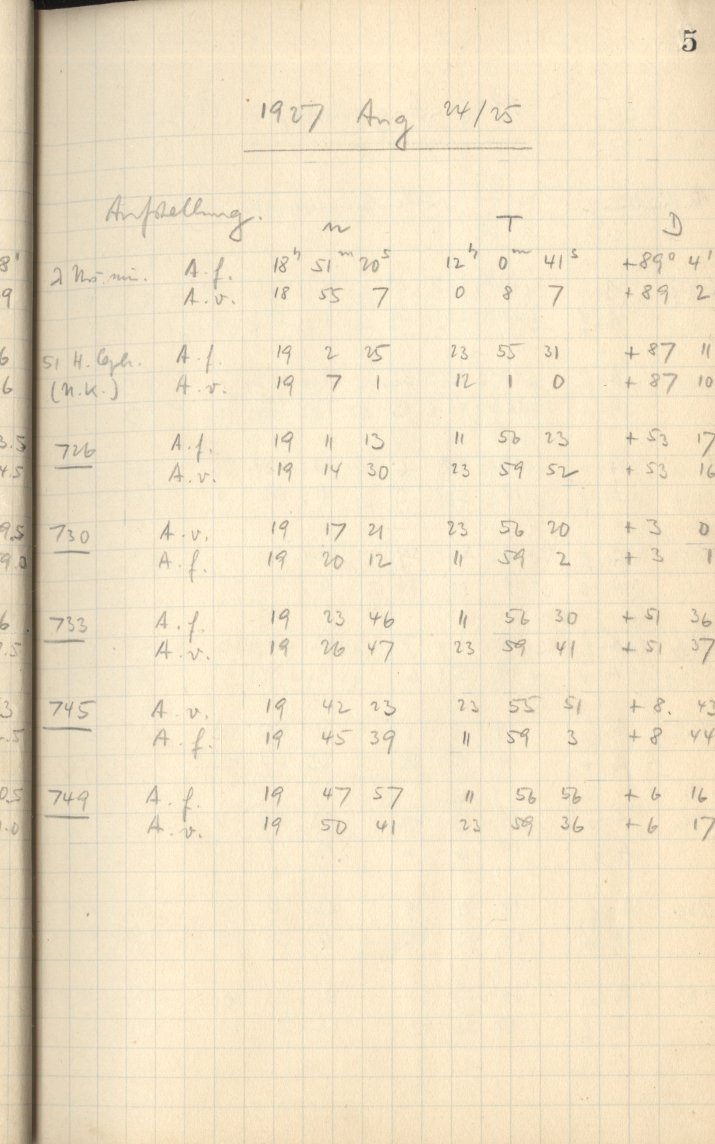 5
1927 Aug 24/25
Aufstellung. u T D
λ Urs. min. A. f. 18ʰ 51ᵐ 20ˢ 12ʰ 0ᵐ 41ˢ +89° 4'
A. v. 18 55 7 0 8 7 +89 2
51 H. Ceph. A. f. 19 2 25 23 55 31 +87 11
(U.K.) A. v. 19 7 1 12 1 0 +87 10
726 A. f. 19 11 13 11 56 23 +53 17
A. v. 19 14 30 23 59 52 +53 16
730 A. v. 19 17 21 23 56 20 +3 0
A. f. 19 20 12 11 59 2 +3 1
733 A. f. 19 23 46 11 56 30 +51 36
A. v. 19 26 47 23 59 41 +51 37
745 A. v. 19 42 23 23 55 51 +8. 43
A. f. 19 45 39 11 59 3 +8 44
749 A. f. 19 47 57 11 56 56 +6 16
A. v. 19 50 41 23 59 36 +6 17